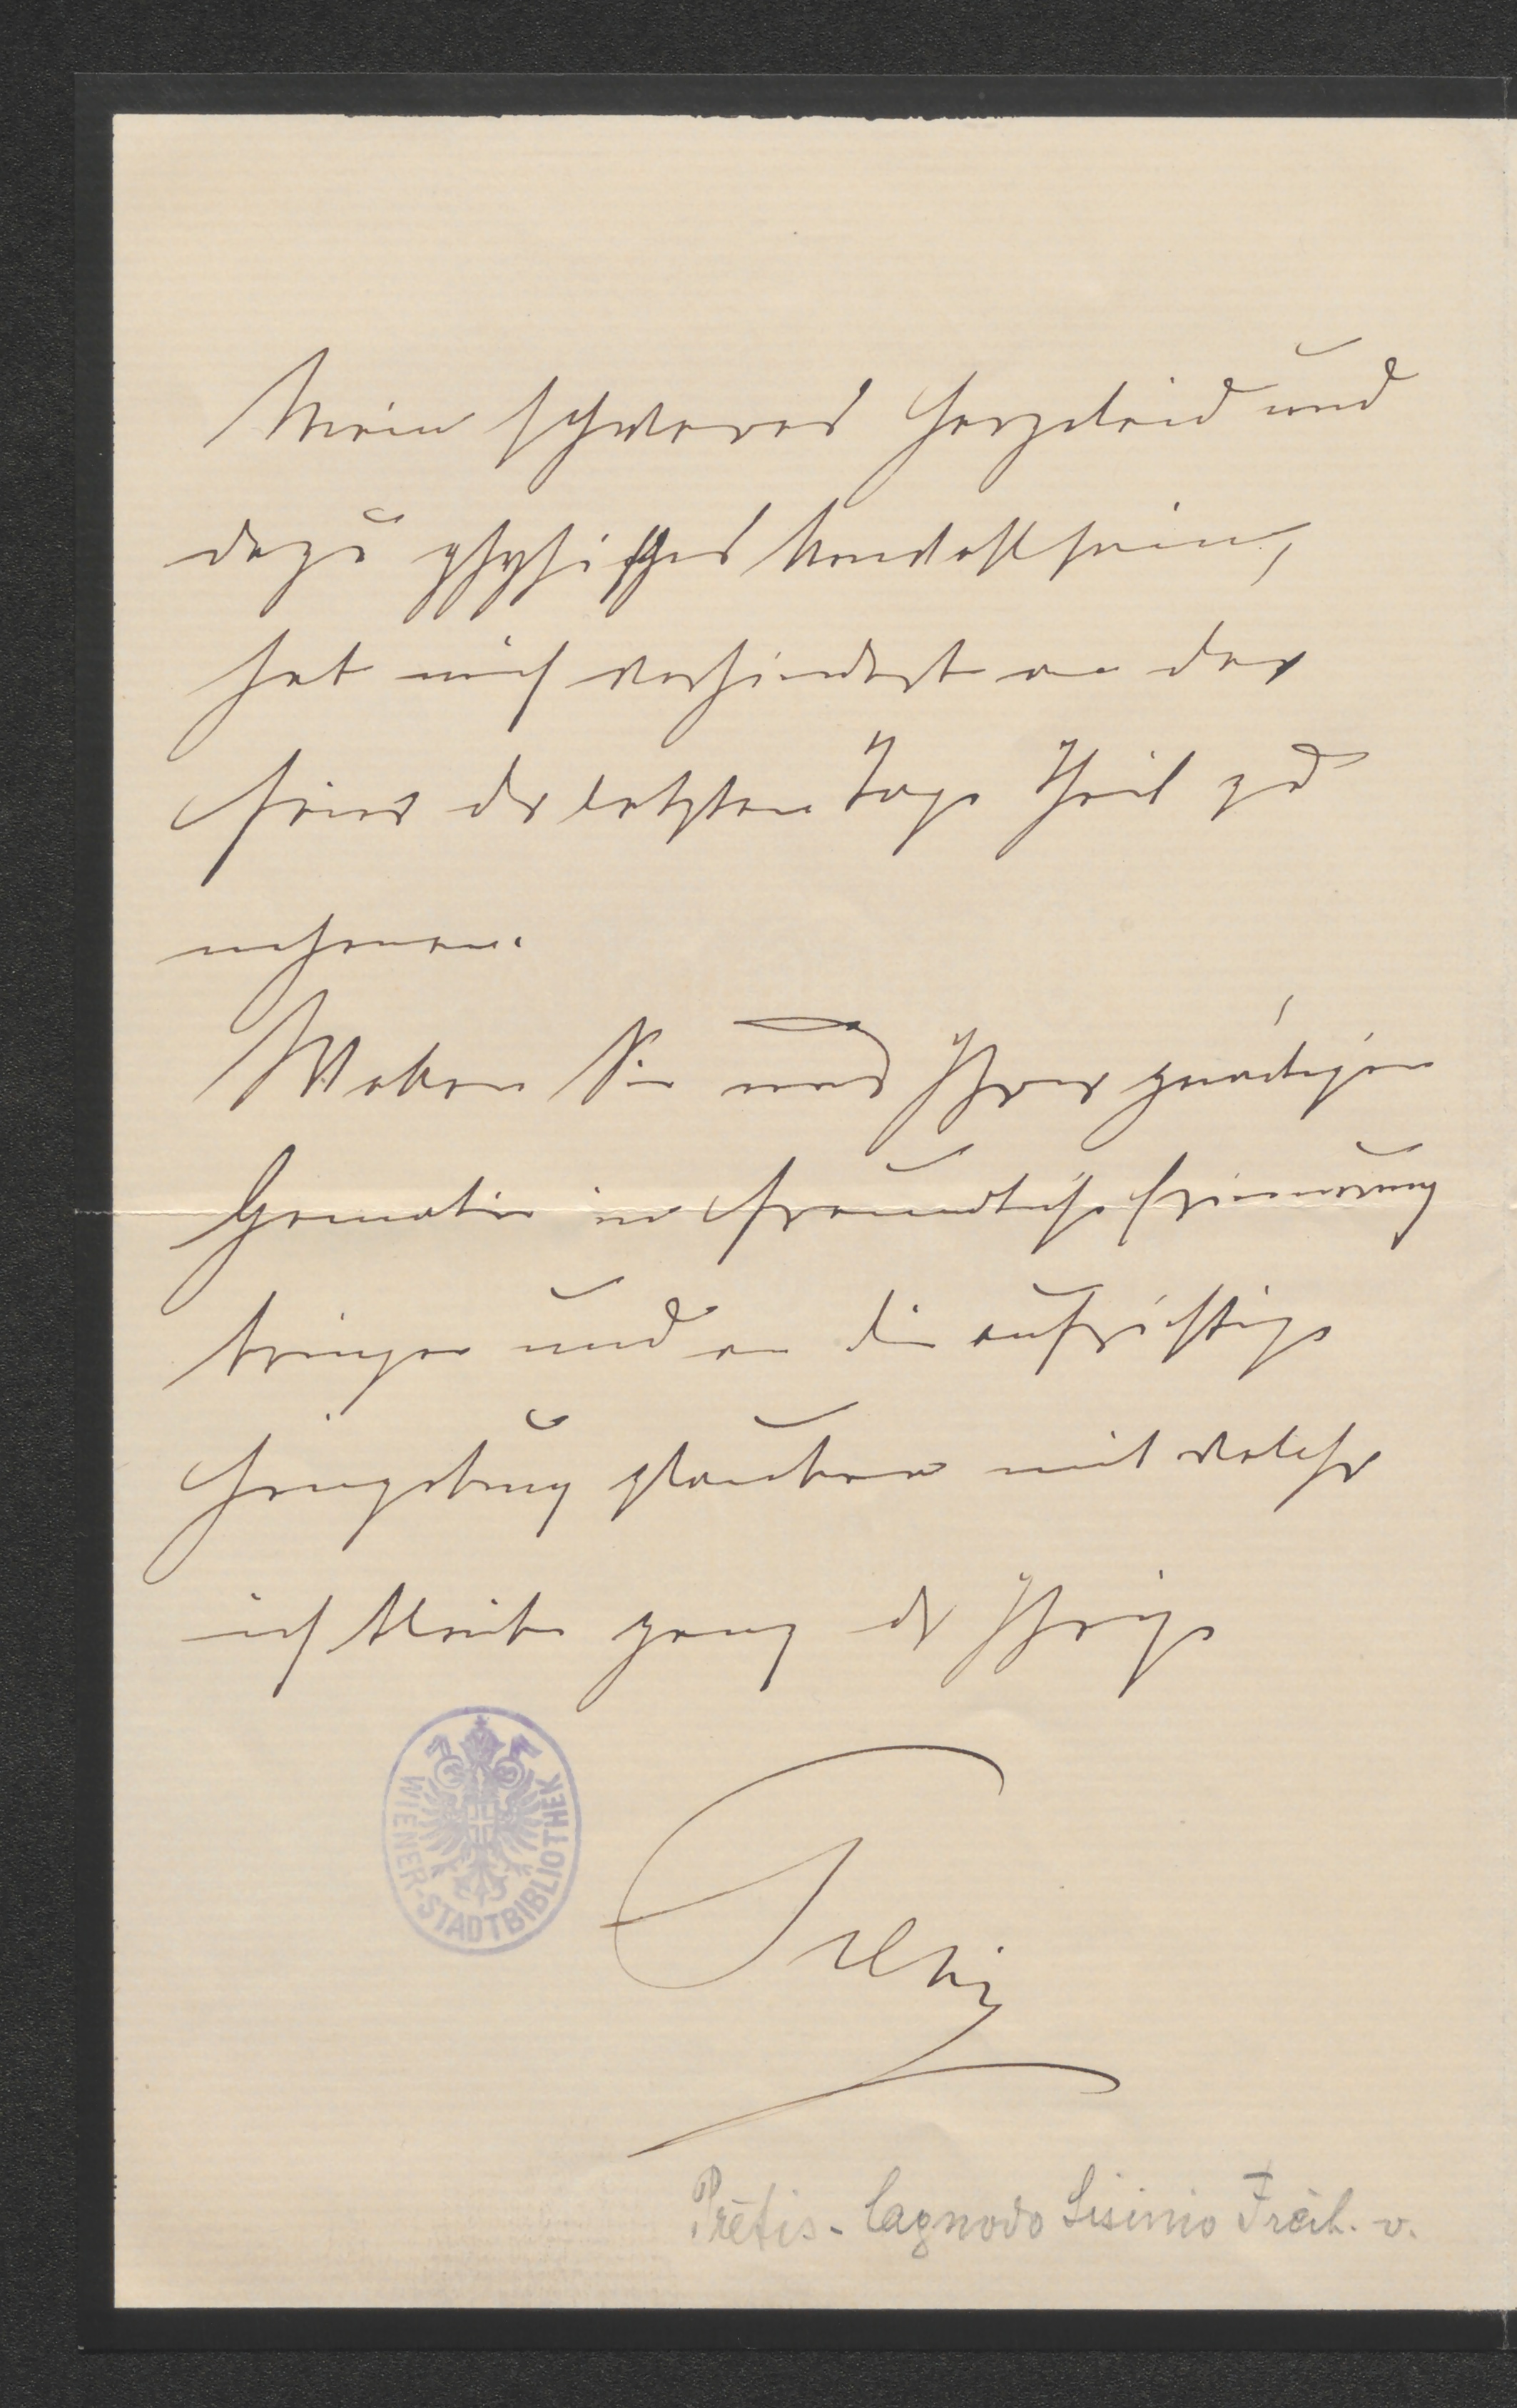 Mein schweres Herzeleid und
dazu physisches Unwohlsein,
hat mich verhindert an der
Feier der letzten Tage Theil zu
nehmen.
Wollen Sie mich Ihrer gnädigen
Gemalin in freundliche Erinnerung
bringen und an die aufrichtige
Hingebung glauben mit welcher
ich bleibe ganz der Ihrige
Pretis
WIENER-STADTBIBLIOTHEK
Pretis-Cagnodo Sisinio Freih. v.